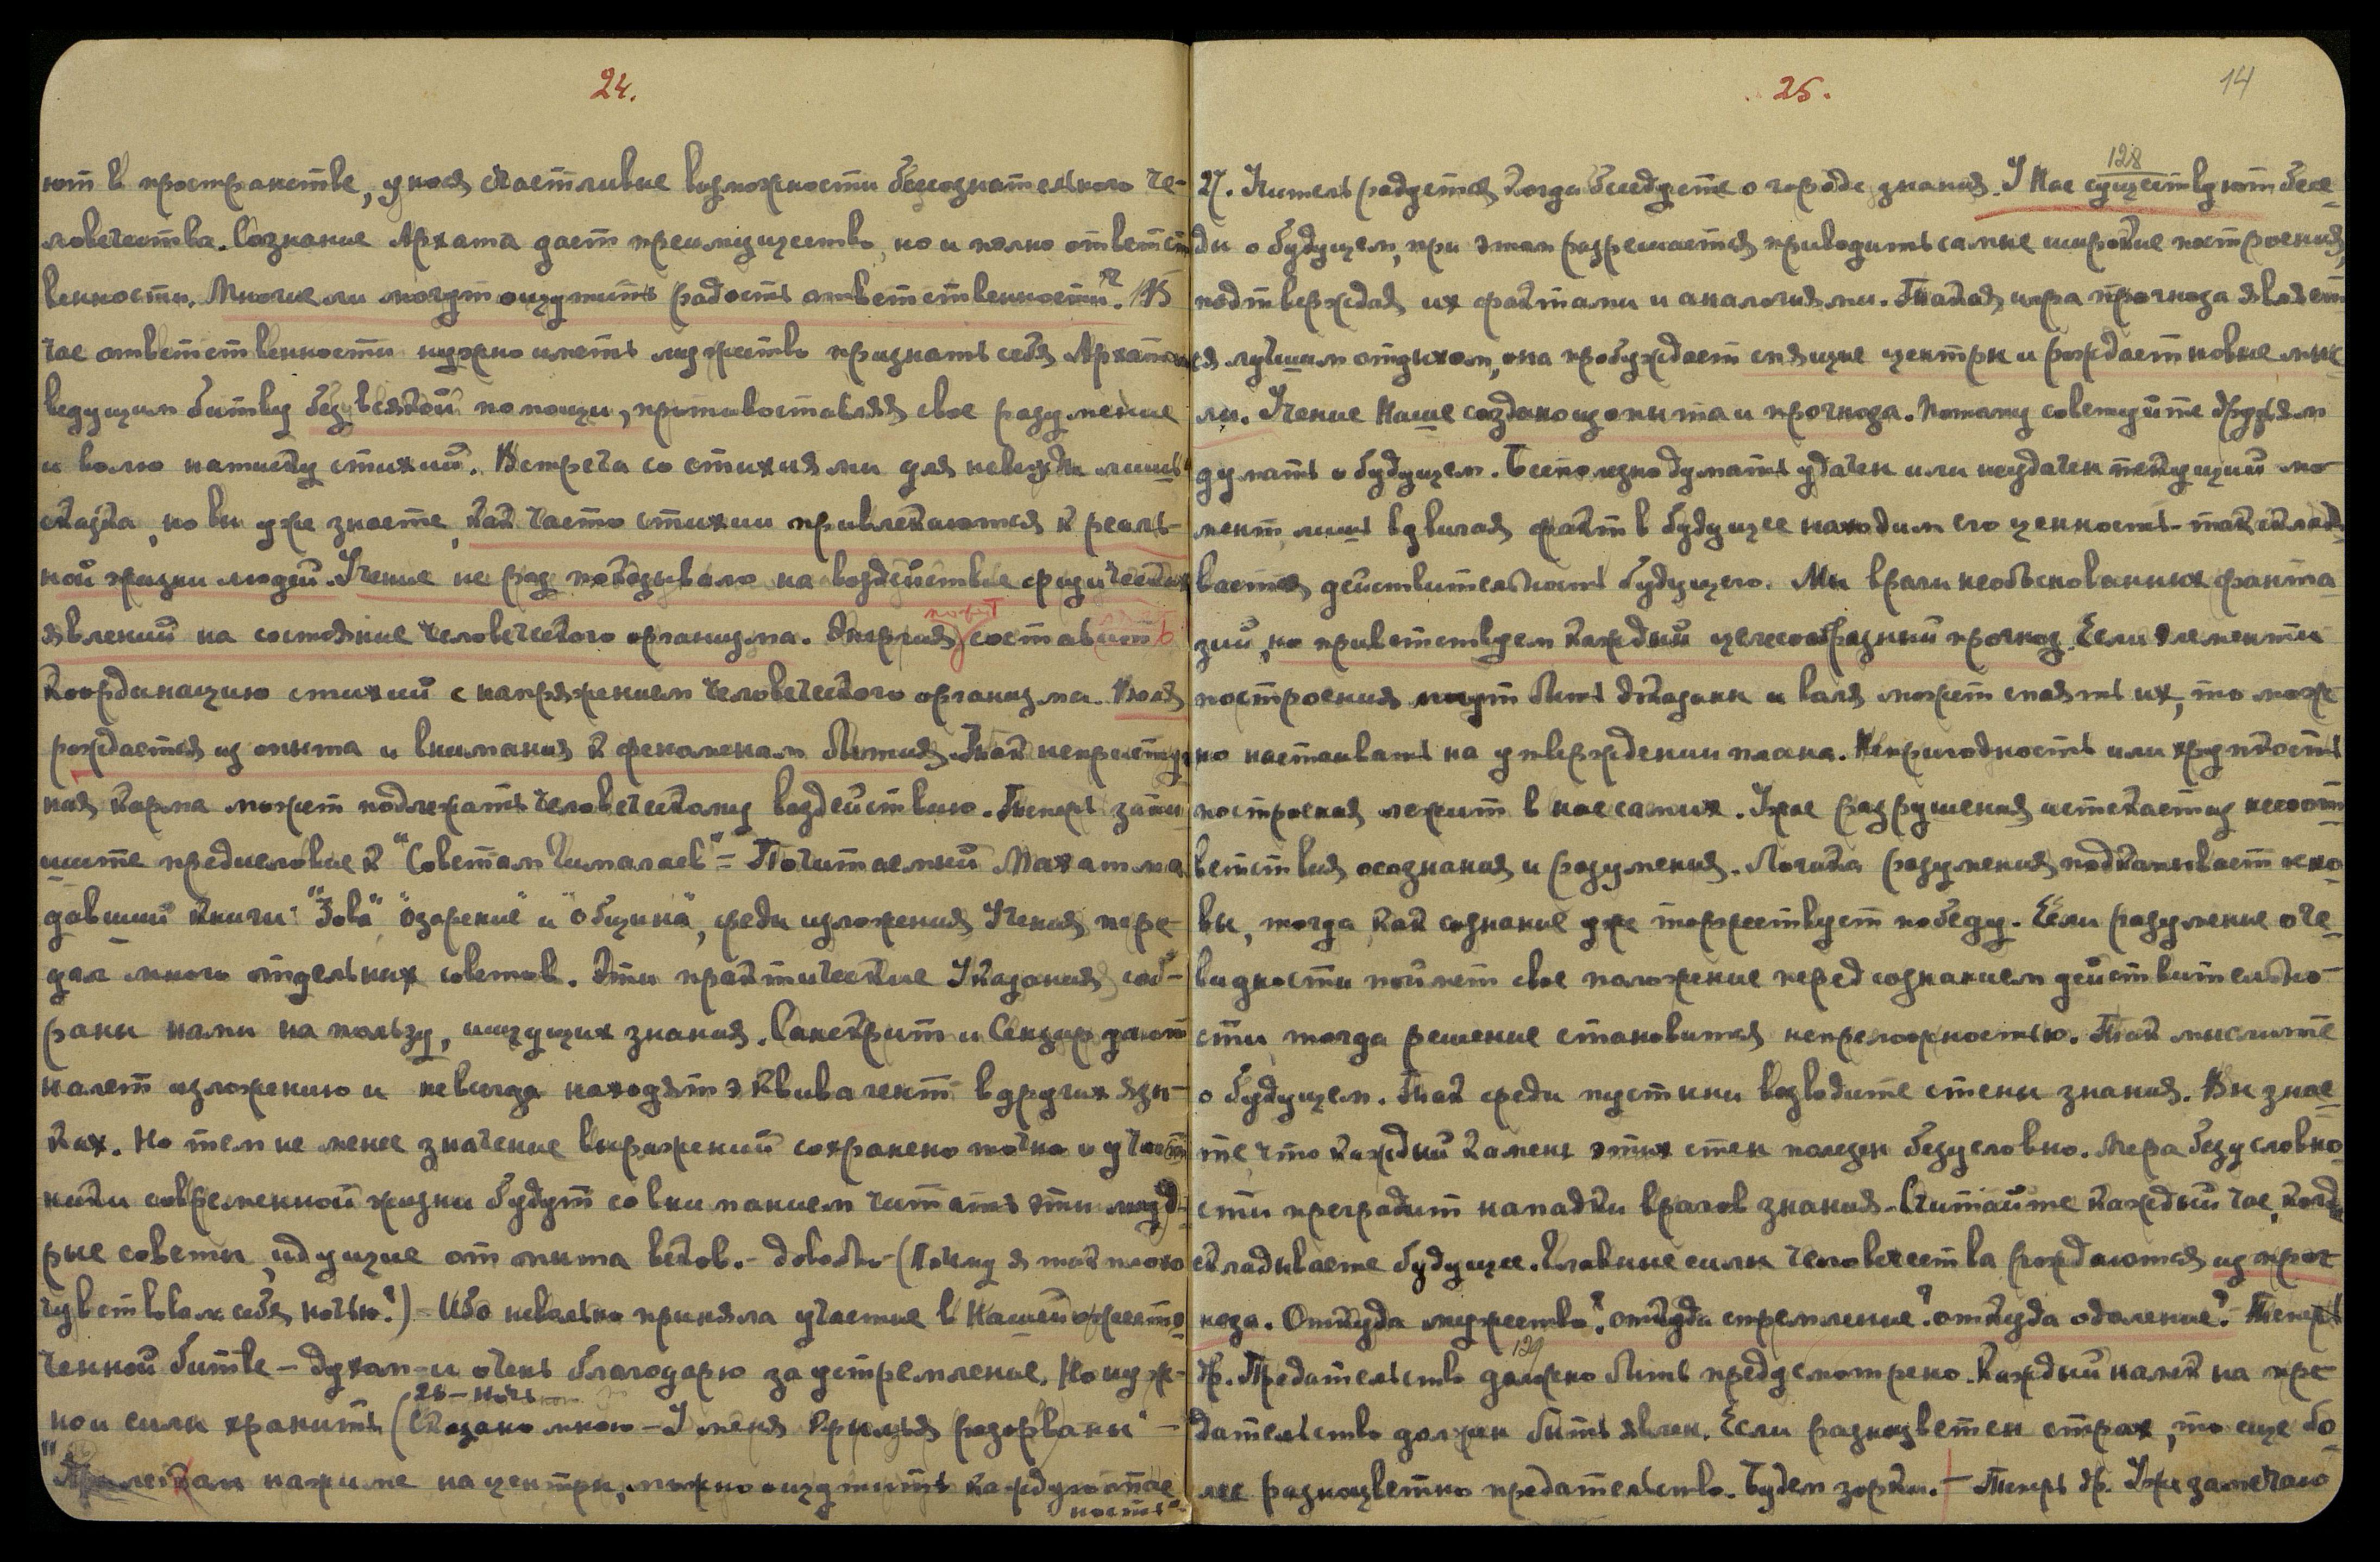 24.
ют в пространстве, унося счастливые возможности безсознательного че-
ловечества. Сознание Архата дает преимущество, но и полно ответст
венности. Многие ли могут ощутить радость ответственности? В
час ответственности нужно иметь мужество признать себя Архатом
ведущим битву без всякой помощи, противоставляя свое разумение
и волю натиску стихий. Встреча со стихиями для невежды лишь
сказка, но вы уже знаете, как часто стихии привлекаются к реаль-
ной жизни людей. Учение не раз показывало на воздействие физических
может
явлений на состояние человеческого организма. Энергия составит
координацию стихий с напряжением человеческого организма. Воля
рождается из опыта и внимания к феноменам Бытия. Так неприступ
ная карма может подлежать человеческому воздействию. Теперь запи
шите предисловие к "Советам Гималаев" = Почитаемый Махатма
давший книги: "Зова", "Озарение" и "Община", среди изложения Учения, пере
дал много отдельных советов. Эти практические Указания соб-
раны нами на пользу, ищущих знания. Санскрит и Сензар дают
налет изложению и не всегда находят эквивалент в других язы-
ках. Но тем не менее значение выражений сохранено точно и участ
ники современной жизни будут со вниманием читать эти муд-
рые советы, идущие от опыта веков. - Довольно (Почему я так плохо
чувствовала себя ночью?) - Ибо невольно приняла участие в Нашей ожесто
ченной битве - духом - и очень благодарю за устремление. Но нуж-
28 - ночью
но и силы хранить (Сказано мною - У меня крылья разорваны" -
нажиме на центры, можно ощутить каждую
ность"
25.
14
128
27. Учитель радуется когда беседуете о городе знания. У Нас существуют бесе
ды о будущем, при этом разрешается приводить самые широкие построения,
подтверждая их фактами и аналогиями. Такая игра прогноза являет
ся лучшим отдыхом, она пробуждает спящие центры и рождает новые мыс
ли. Учение Наше создано из опыта и прогноза. Потому советуйте друзьям
думать о будущем. Бесполезно думать удачен или неудачен текущий мо
мент, лишь вдвигая факт в будущее находим его ценность - так склады
вается действительность будущего. Мы враги необоснованных фанта
зий, но приветствуем каждый целесообразный прогноз. Если элементы
построения могут быть указаны и воля может спаять их, то мож
но настаивать на утверждении плана. Непригодность или хрупкость
построения лежит в нас самих. Ужас разрушения истекает из несоот
ветствия осознания и разумения. Логика разумения подкапывает осно
вы, тогда как сознание уже торжествует победу. Если разумение оче
видности поймет свое положение перед сознанием действительно
сти, тогда решение становится непреложностью. Так мыслите
о будущем. Так среди пустыни возводите стены знания. Вы знае
те, что каждый камень этих стен полезен безусловно. Мера безусловно
сти преградит нападки врагов знания. Считайте каждый час, когда
складываете будущее. Главные силы человечества рождаются из прог
ноза. Откуда мужество? откуда стремление? откуда одоление? - Теперь
129
др. Предательство должно быть предусмотрено. Каждый намек на пре
дательство должен быть явлен. Если разноцветен страх, то еще бо
лее разноцветно предательство. Будем зорки. - Теперь др. Уже замечаю